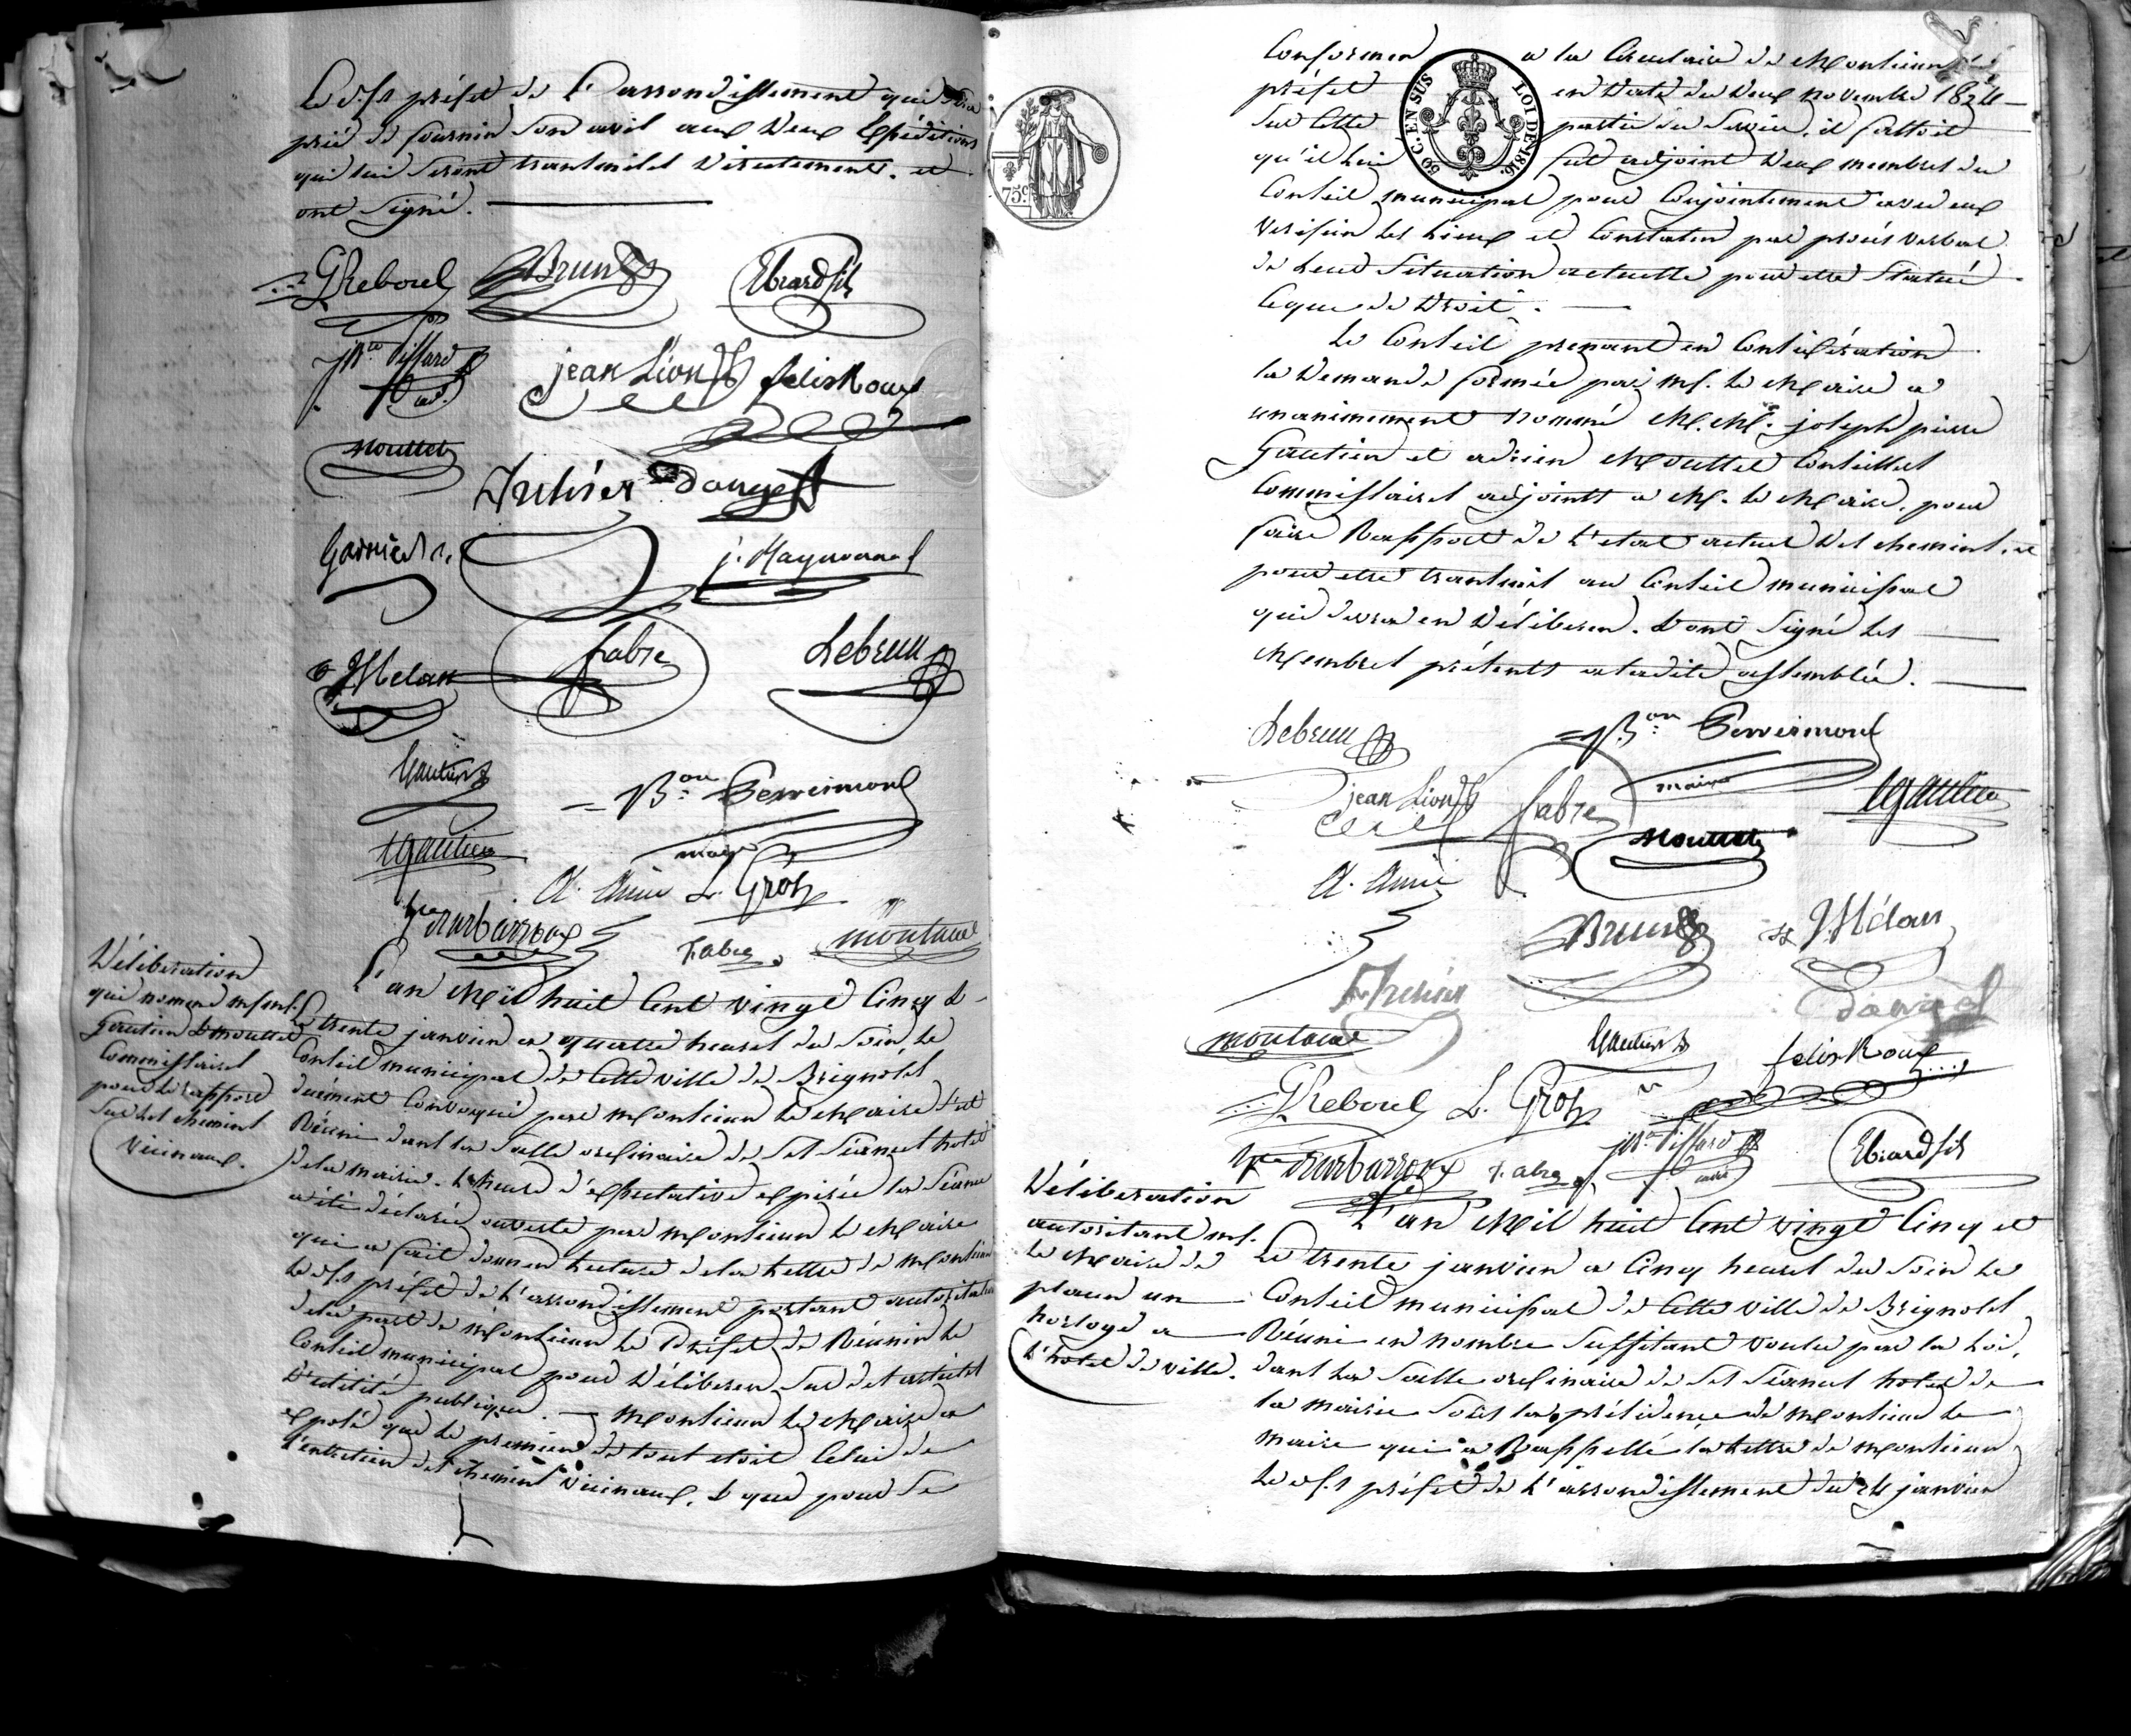 Le s.s préfet de l'arrondissement qui sera
prié de fournir son avis aux deux Expéditions
qui lui seront transmises directement. et
ont signé.
GReboul Brun Ebrard fils
jean Lion felix Roux
Mouttet
Garnier j. Maynard
fabre Lebrun
Gautier Bon Perreimond
Gautier maire
A. Amic L. Gros
Barbarroux Fabre moutoue
Délibération
qui nomme mssrs
Gautier & mouttet
Commissaires
pour le rapport
sur les chemins
vicinaux.
L'an Mil huit Cent vingt Cinq &
le trente janvier a quatre heures du soir, le
Conseil municipal de cette ville de Brignoles
duement convoqué par Monsieur le Maire s'est
Réuni dans la salle ordinaire de ses séances hotel
de la mairie. L'heure d'expectative expirée la séance
a été déclarée ouverte par Monsieur le Maire
qui a fait donner lecture de la lettre de Monsieur
le s.s préfet de l'arrondissement portant autorisation
de la part de Monsieur le Préfet de Réunir le
Conseil municipal pour délibérer sur des articles
d'utilité publique. — Monsieur le Maire a
exposé que le premier de tous etoit celui de
l'entretien des chemins vicinaux, & que pour se
75 c.
Conformer a la Circulaire de Monsieur le
préfet en date du deux novembre 1824
50 C. EN SUS LOI DE 1816.
sur cette partie du service, il falloit
qu'il lui fut adjoint deux membres du
Conseil municipal pour conjointement avec eux
verifier les lieux et constater par procès verbal
de leur situation actuelle pour etre statué
ce que de droit.
Le Conseil prenant en considération
la demande formée par mr. le Maire a
unanimement nommé M.M. joseph pierre
Gautier et adrien Mouttet Conseillers
Commissaires adjoints a M. le Maire, pour
faire Rapport de l'etat actuel des chemins, et
pour etre transmis au Conseil municipal
qui devra en délibérer. & ont signé les
Membres présents a ladite assemblée.
Lebrun Bon Perreimond
jean Lion fabre maire Gautier
Mouttet
A. Amic
Brun
moutoue Gautier felix Roux
GReboul L. Gros
Barbarroux Fabre Ebrard fils
Délibération
autorisant mr.
le Maire de
placer un
horloge a
l'hotel de ville.
L'an Mil huit Cent vingt Cinq et
Le trente janvier a cinq heures du soir le
Conseil municipal de cette ville de Brignoles
Réuni en nombre suffisant voulu par la loi,
dans la salle ordinaire de ses séances hotel de
la mairie sous la présidence de Monsieur le
maire qui a Rappellé la lettre de Monsieur
le s.s préfet de l'arrondissement du 24 janvier